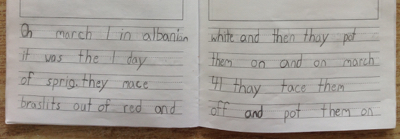 On march 1 in albanian
it was the 1 day
of sprig. they mace
braslits out of red and
white and then thay pot
them on and on march
41 thay tace them
off and pot them on